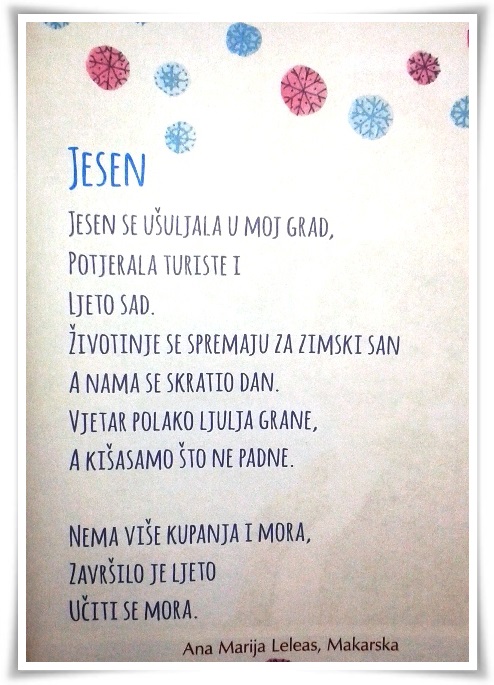 JESEN
JESEN SE UŠULJALA U MOJ GRAD,
POTJERALA TURISTE I
LJETO SAD.
ŽIVOTINJE SE SPREMAJU ZA ZIMSKI SAN
A NAMA SE SKRATIO DAN.
VJETAR POLAKO LJULJA GRANE,
A KIŠASAMO ŠTO NE PADNE.
NEMA VIŠE KUPANJA I MORA,
ZAVRŠILO JE LJETO
UČITI SE MORA.
Ana Marija Leleas, Makarska